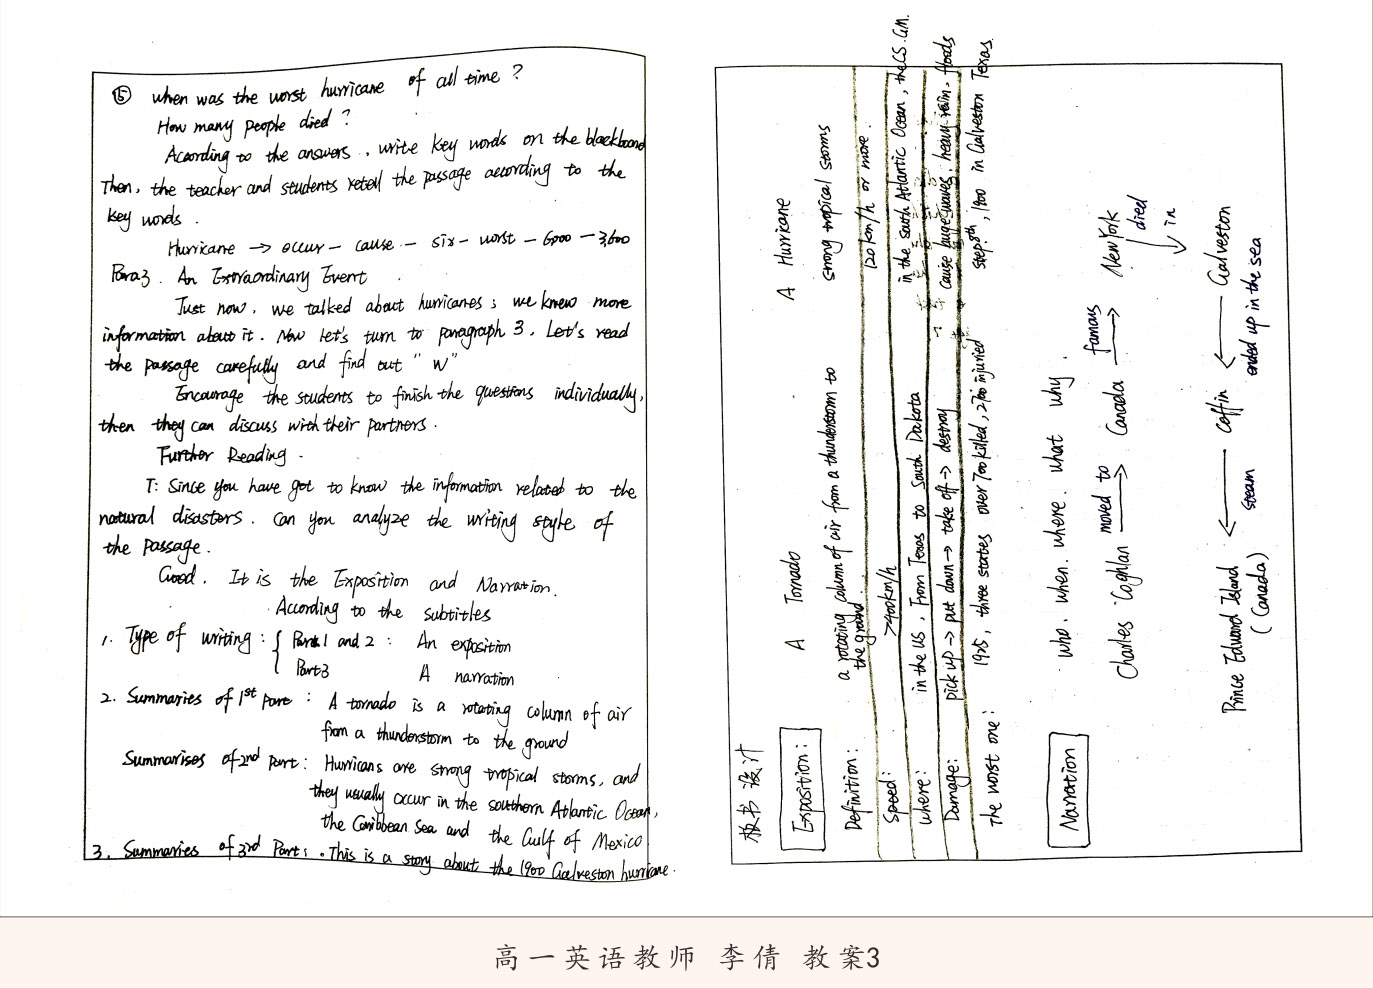 ⑤ when was the worst hurricane of all time ?
How many people died ?
According to the answers , write key words on the blackboard
Then , the teacher and students retell the passage according to the
key words .
Hurricane → occur - cause - six - worst - 6000 - 3,600
Para3 . An Extraordinary Event
Just now , we talked about hurricanes ; we knew more
information about it . Now let's turn to paragraph 3 . Let's read
the passage carefully and find out " W "
Encourage the students to finish the questions individually,
then they can discuss with their partners .
Further Reading .
T: Since you have got to know the information related to the
natural disasters . Can you analyze the writing style of
the passage .
Good . It is the Exposition and Narration.
According to the subtitles
1. Type of writing : { Part 1 and 2 : An exposition
Part3 A narration
2. Summaries of 1st Part : A tornado is a rotating column of air
from a thunderstorm to the ground
Summarises of 2nd Part : Hurricans are strong tropical storms, and
they usually occur in the southern Atlantic Ocean,
the Caribbean Sea and the Gulf of Mexico
3. Summaries of 3rd Part : . This is a story about the 1900 Galveston hurricane .
板书设计
Exposition : A Tornado A Hurricane
Definition : a rotating column of air from a thunderstorm to strong tropical storms
the ground .
Speed : >400km/h 120km/h or more .
where : in the US , From Texas to South Dakota in the south Atlantic Ocean , the CS . GM.
Damage: pick up → put down → take off → destroy cause huge waves , heavy rain . floods
The worst one : 1925 , three states over 700 killed , 2700 injured 1900 in Galveston Texas
Narration who . when . where . what why .
Charles Coghlan moved to → Canada famous → New York
died in
Prince Edward Island ← steam Coffin ← Galveston
( Canada ) ended up in the sea
高一英语教师 李倩 教案3